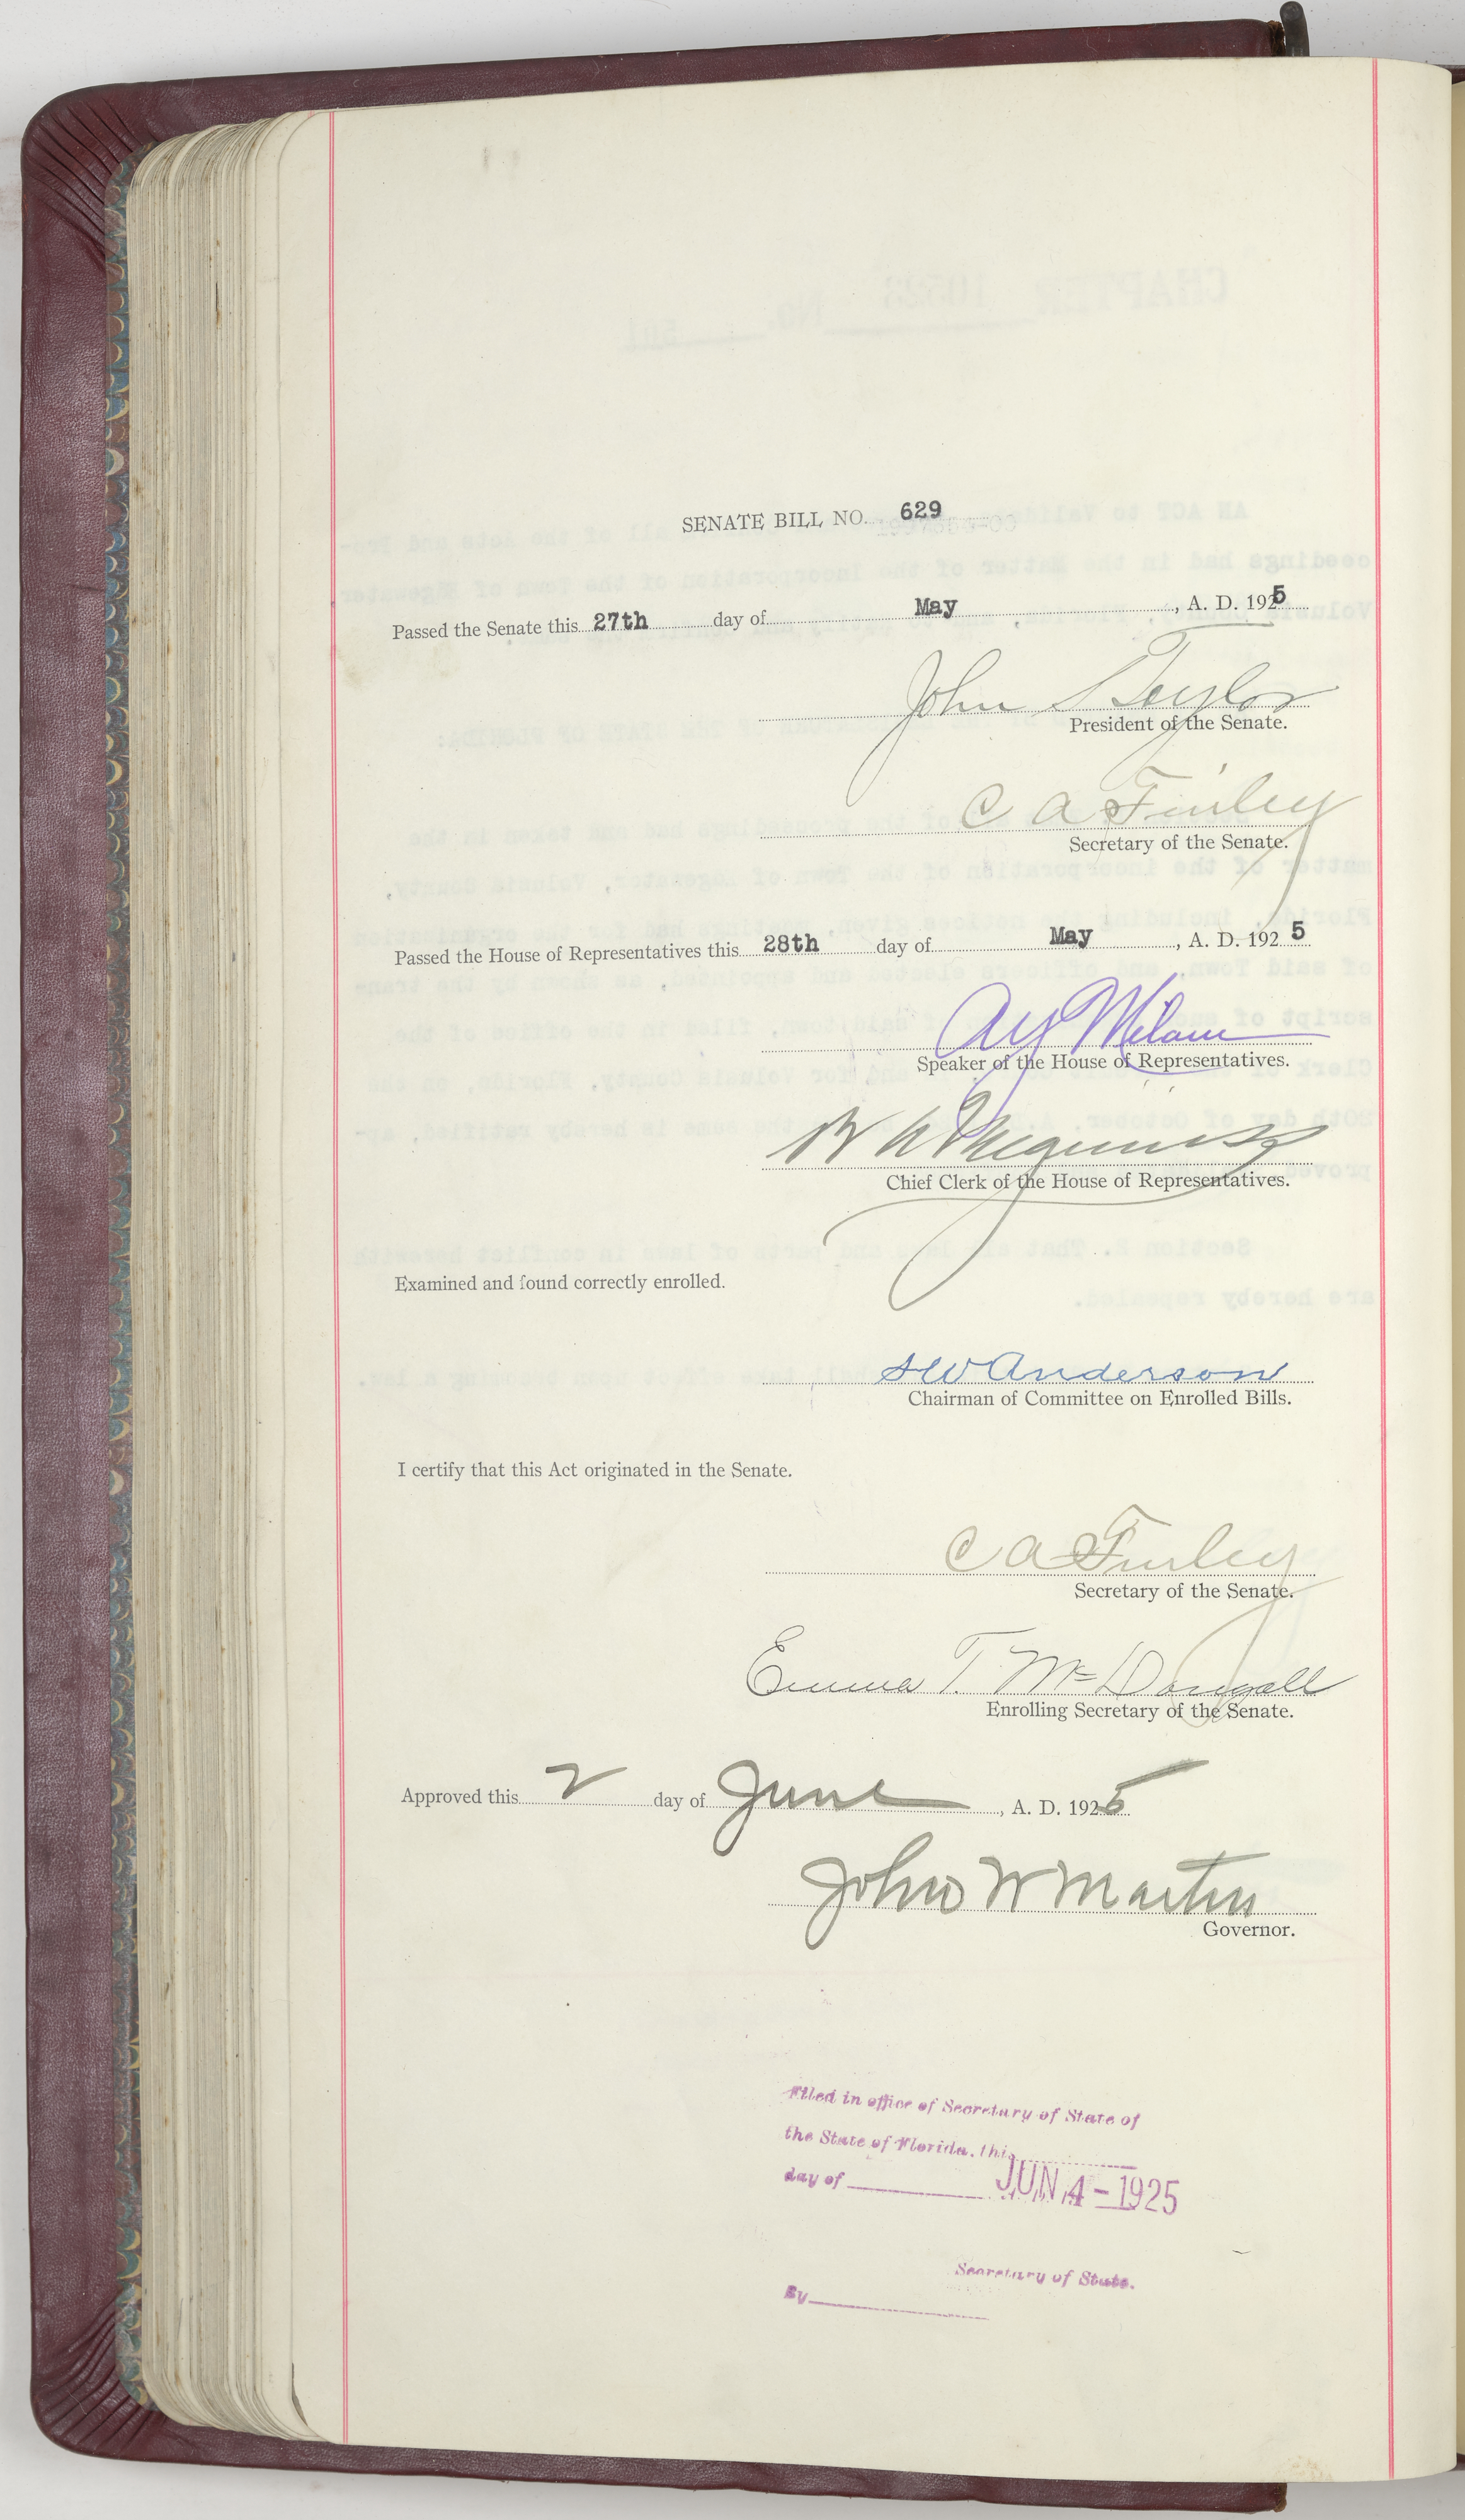 SENATE BILL NO. 629
Passed the Senate this 27th day of May, A. D. 1925
John S Taylor
President of the Senate.
C A Finley
Secretary of the Senate.
Passed the House of Representatives this 28th day of May, A. D. 1925
A Y Milam
Speaker of the House of Representatives.
Chief Clerk of the House of Representatives.
Examined and found correctly enrolled.
S W Anderson
Chairman of Committee on Enrolled Bills.
I certify that this Act originated in the Senate.
C A Finley
Secretary of the Senate.
Emma T. McDougall
Enrolling Secretary of the Senate.
Approved this 2 day of June, A. D. 1925
John W Martin
Governor.
Filed in office of Secretary of State of
the State of Florida, this
day of JUN 4 - 1925
Secretary of State.
By